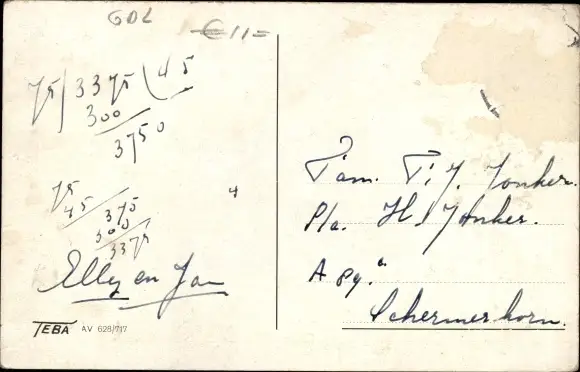 GDL
€ 11=
75 / 3375 \ 45
300
3750
75
45
375
300
3375
4
Elly en Jan
TEBA AV 628/717
Fam. P. J. Jonker.
P/a. H. Jonker.
A
Schermerhorn.